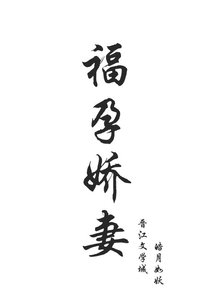 福孕娇妻
皓月如妖
晋江文学城